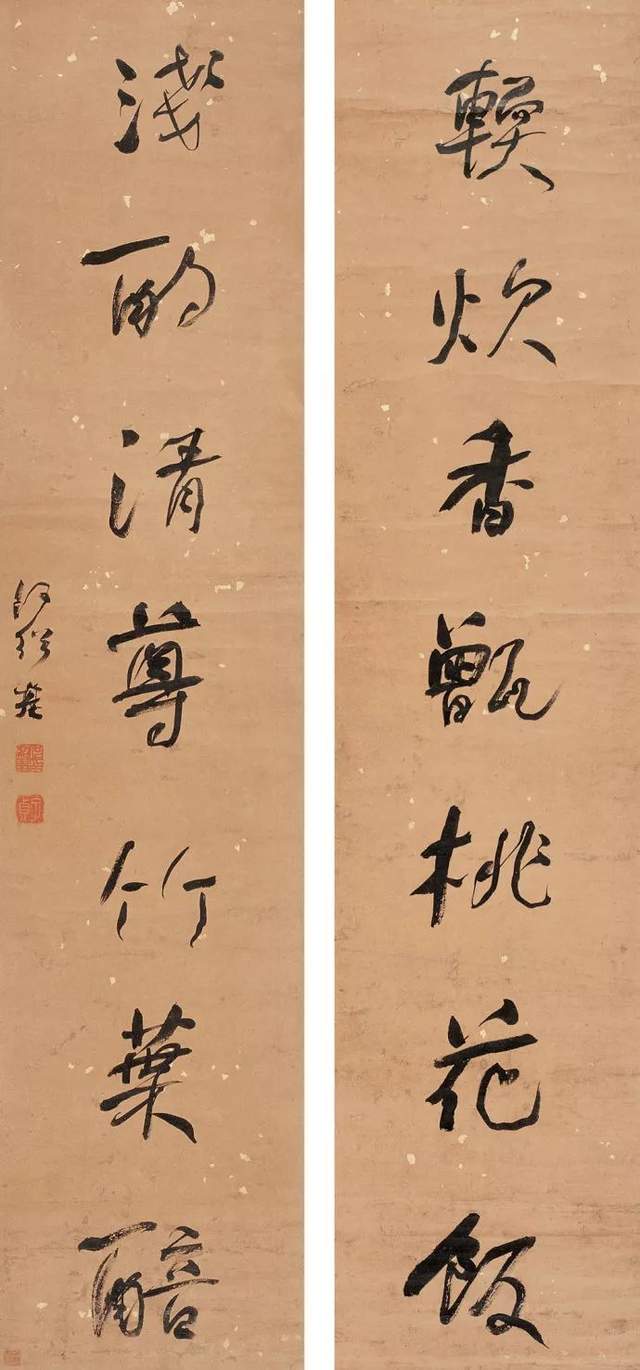 輭炊香甑桃花飯
淺酌清尊竹葉醅
何紹基